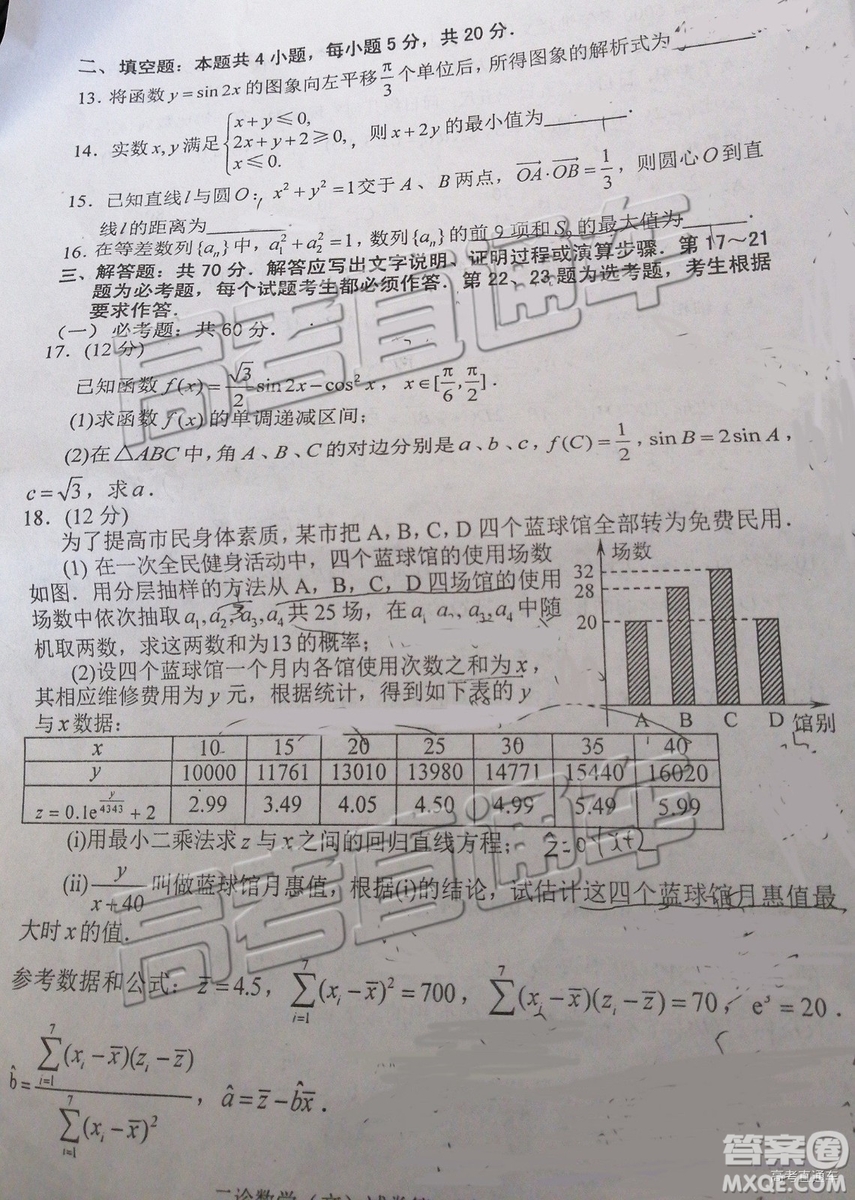 二、填空题：本题共4小题，每小题5分，共20分.
13. 将函数 y=sin2x 的图象向左平移 π/3 个单位后，所得图象的解析式为________
14. 实数 x,y 满足 { x+y≤0, 2x+y+2≥0, x≤0. 则 x+2y 的最小值为________
15. 已知直线 l 与圆 O：x²+y²=1 交于 A、B 两点，OA·OB=1/3，则圆心 O 到直
线 l 的距离为________
16. 在等差数列{aₙ}中，a₁²+a₂²=1，数列{aₙ}的前9项和S₉的最大值为________
三、解答题：共70分．解答应写出文字说明、证明过程或演算步骤．第17～21
题为必考题，每个试题考生都必须作答．第22、23题为选考题，考生根据
要求作答．
（一）必考题：共60分．
17. (12分)
已知函数 f(x)=√3/2 sin2x−cos²x，x∈[π/6, π/2]．
(1)求函数 f(x)的单调递减区间；
(2)在△ABC中，角A、B、C的对边分别是a、b、c，f(C)=1/2，sinB=2sinA，
c=√3，求a．
18. (12分)
为了提高市民身体素质，某市把A,B,C,D四个蓝球馆全部转为免费民用．
(1) 在一次全民健身活动中，四个蓝球馆的使用场数
如图．用分层抽样的方法从A，B，C，D四场馆的使用
场数中依次抽取a₁,a₂,a₃,a₄共25场，在a₁ a₂,a₃,a₄中随
机取两数，求这两数和为13的概率；
(2)设四个蓝球馆一个月内各馆使用次数之和为x，
其相应维修费用为y元，根据统计，得到如下表的y
与x数据：
场数
32
28
20
A B C D 馆别
x 10 15 20 25 30 35 40
y 10000 11761 13010 13980 14771 15440 16020
z=0.1e^(y/4343)+2 2.99 3.49 4.05 4.50 4.99 5.49 5.99
(i)用最小二乘法求z与x之间的回归直线方程；
(ii) y/(x+40) 叫做蓝球馆月惠值，根据(i)的结论，试估计这四个蓝球馆月惠值最
大时x的值．
参考数据和公式：z̄=4.5，∑(i=1→7)(xᵢ−x̄)²=700，∑(i=1→7)(xᵢ−x̄)(zᵢ−z̄)=70，e³=20．
b̂=∑(i=1→7)(xᵢ−x̄)(zᵢ−z̄)/∑(i=1→7)(xᵢ−x̄)²，â=z̄−b̂x̄．
高考直通车
高考直通车
高考直通车
答案圈
MXQE.COM
高考直通车